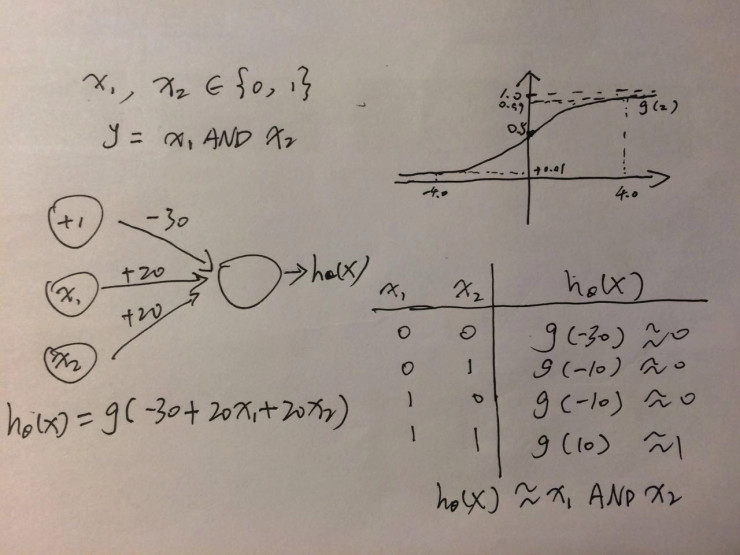 x₁, x₂ ∈ {0, 1}
y = x₁ AND x₂
1.0
0.99
g(z)
0.5
+0.01
-4.0
4.0
+1
-30
x₁
+20
hθ(x)
+20
x₂
hθ(x) = g(-30+20x₁+20x₂)
x₁ x₂ hθ(x)
0 0 g(-30) ≈0
0 1 g(-10) ≈0
1 0 g(-10) ≈0
1 1 g(10) ≈1
hθ(x) ≈ x₁ AND x₂